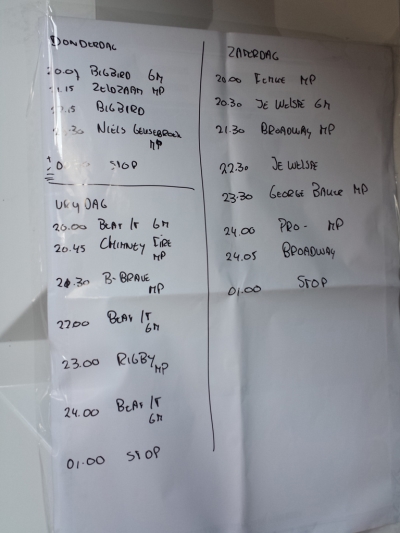 DONDERDAG
20.00 BIGBIRD GM
.15 ZELDZAAM MP
.15 BIGBIRD
.30 NIELS GEUSEBROEK
MP
STOP
VRYDAG
20.00 BEAT IT GM
20.45 CHIMNEY FIRE
MP
21.30 B-BRAVE
MP
22.00 BEAT IT
GM
23.00 RIGBY MP
24.00 BEAT IT
GM
01.00 STOP
ZATERDAG
20.00 MP
20.30 JE WELSTE GM
21.30 BROADWAY MP
22.30 JE WELSTE
23.30 GEORGE BAKER MP
24.00 PRO- MP
24.05 BROADWAY
01.00 STOP